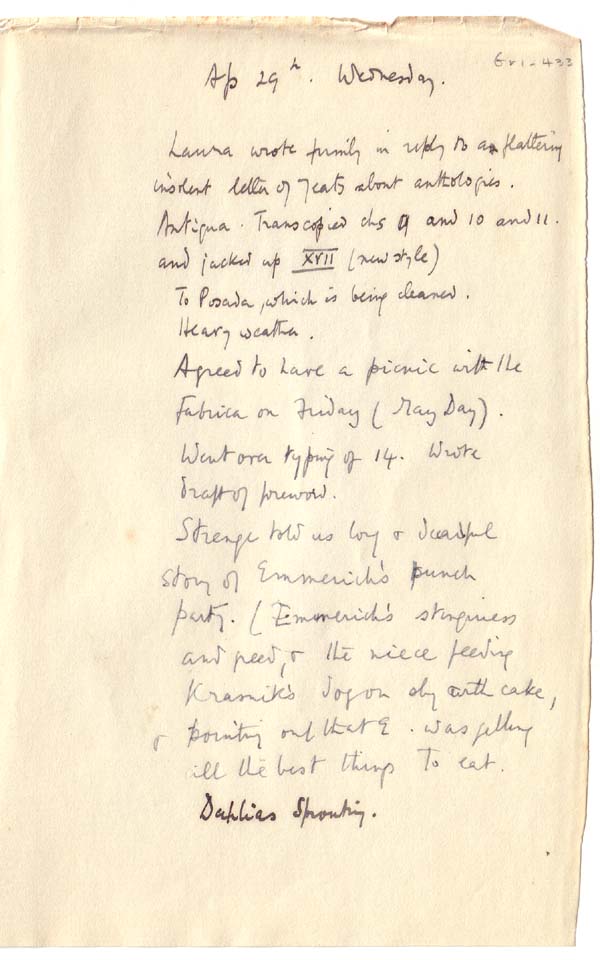 Gr1-433
Ap 29th. Wednesday.
Laura wrote firmly in reply to a flattering
insolent letter of Yeats about anthologies.
Antigua. Transcopied chs 9 and 10 and 11.
and jacked up XVII (new style)
To Posada, which is being cleaned.
Heavy weather.
Agreed to have a picnic with the
Fabrica on Friday (May Day).
Went over typing of 14. Wrote
draft of foreword.
Strenge told us long & dreadful
story of Emmerich's punch
party. (Emmerich's stinginess
and greed, & the niece feeding
Krasnik's dog on sly with cake,
& pointing out that E. was getting
all the best things to eat.
Dahlias Sprouting.